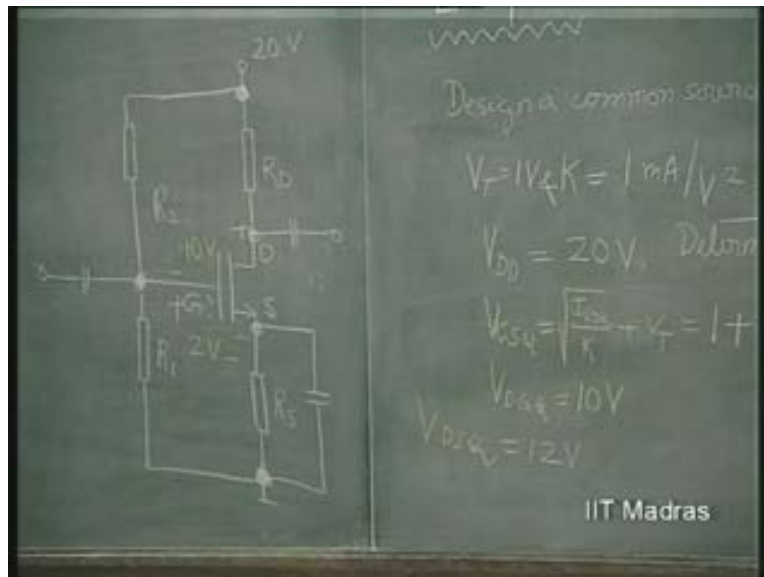 20V
R_D
R_2
10V
D
G
S
+
2V
-
R_1
R_S
Design a common source
V_T = 1V & K = 1 mA/V2
V_DD = 20V.
V_GSQ = √(I_DQ/K) + V_T = 1 +
V_DGQ = 10V
V_DSQ = 12V
IIT Madras